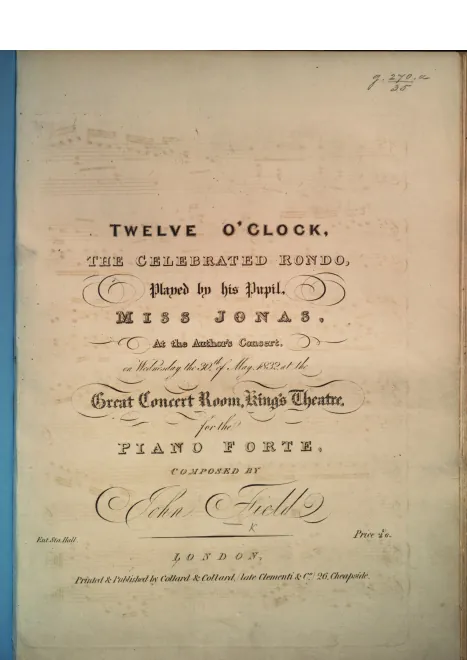 g. 270. a
25
TWELVE O'CLOCK,
THE CELEBRATED RONDO,
Played by his Pupil,
MISS JONAS,
At the Author's Concert.
on Wednesday the 30th of May, 1832 at the
Great Concert Room, King's Theatre,
for the
PIANO FORTE,
COMPOSED BY
John Field
K
Ent. Sta. Hall.
Price
LONDON,
Printed & Published by Collard & Collard, late Clementi & Co. 26, Cheapside.